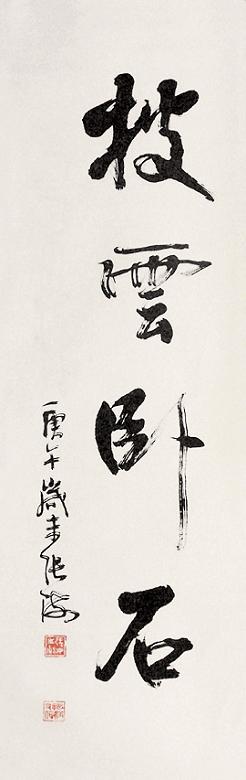 披雲卧石
庚午歲末張海